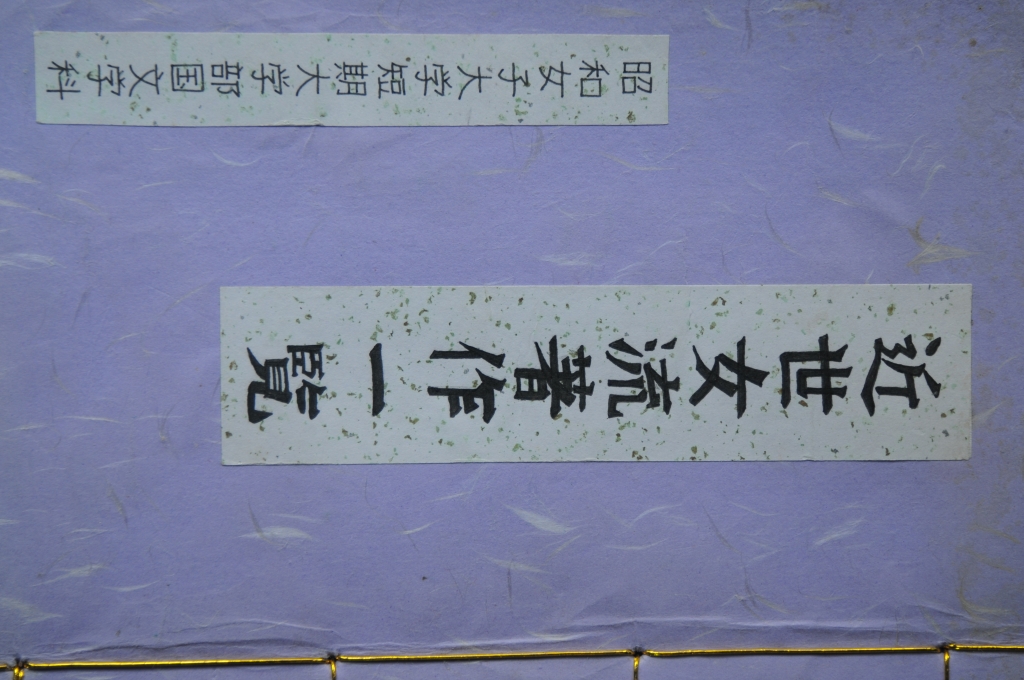 近世女流著作一覧
昭和女子大学短期大学部国文学科